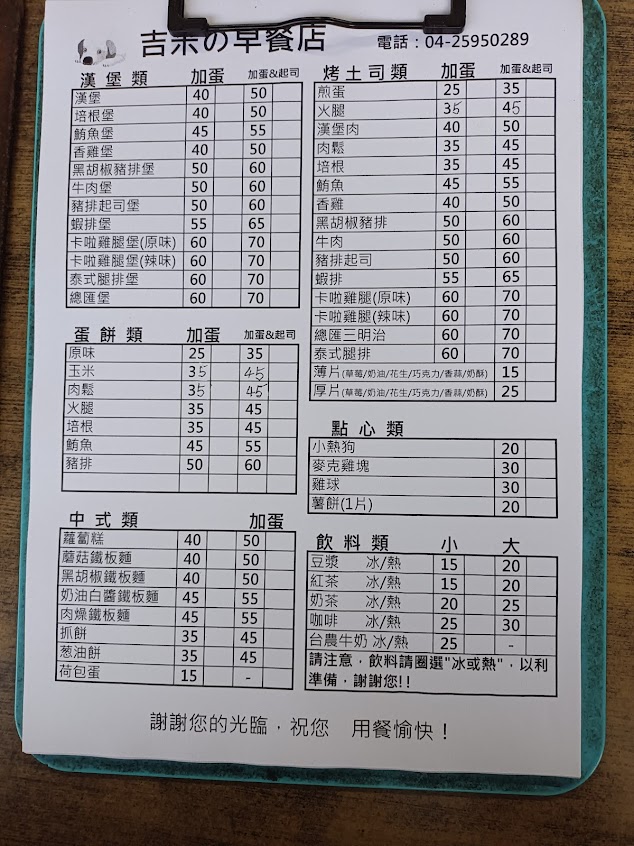 吉米の早餐店
電話：04-25950289
漢堡類 加蛋 加蛋&起司
漢堡 40 50
培根堡 40 50
鮪魚堡 45 55
香雞堡 40 50
黑胡椒豬排堡 50 60
牛肉堡 50 60
豬排起司堡 50 60
蝦排堡 55 65
卡啦雞腿堡(原味) 60 70
卡啦雞腿堡(辣味) 60 70
泰式腿排堡 60 70
總匯堡 60 70
蛋餅類 加蛋 加蛋&起司
原味 25 35
玉米 35 45
肉鬆 35 45
火腿 35 45
培根 35 45
鮪魚 45 55
豬排 50 60
中式類 加蛋
蘿蔔糕 40 50
蘑菇鐵板麵 40 50
黑胡椒鐵板麵 40 50
奶油白醬鐵板麵 45 55
肉燥鐵板麵 45 55
抓餅 35 45
葱油餅 35 45
荷包蛋 15 -
烤土司類 加蛋 加蛋&起司
煎蛋 25 35
火腿 35 45
漢堡肉 40 50
肉鬆 35 45
培根 35 45
鮪魚 45 55
香雞 40 50
黑胡椒豬排 50 60
牛肉 50 60
豬排起司 50 60
蝦排 55 65
卡啦雞腿(原味) 60 70
卡啦雞腿(辣味) 60 70
總匯三明治 60 70
泰式腿排 60 70
薄片(草莓/奶油/花生/巧克力/香蒜/奶酥) 15
厚片(草莓/奶油/花生/巧克力/香蒜/奶酥) 25
點心類
小熱狗 20
麥克雞塊 30
雞球 30
薯餅(1片) 20
飲料類 小 大
豆漿 冰/熱 15 20
紅茶 冰/熱 15 20
奶茶 冰/熱 20 25
咖啡 冰/熱 25 30
台農牛奶 冰/熱 25 -
請注意，飲料請圈選"冰或熱"，以利
準備，謝謝您!!
謝謝您的光臨，祝您 用餐愉快！